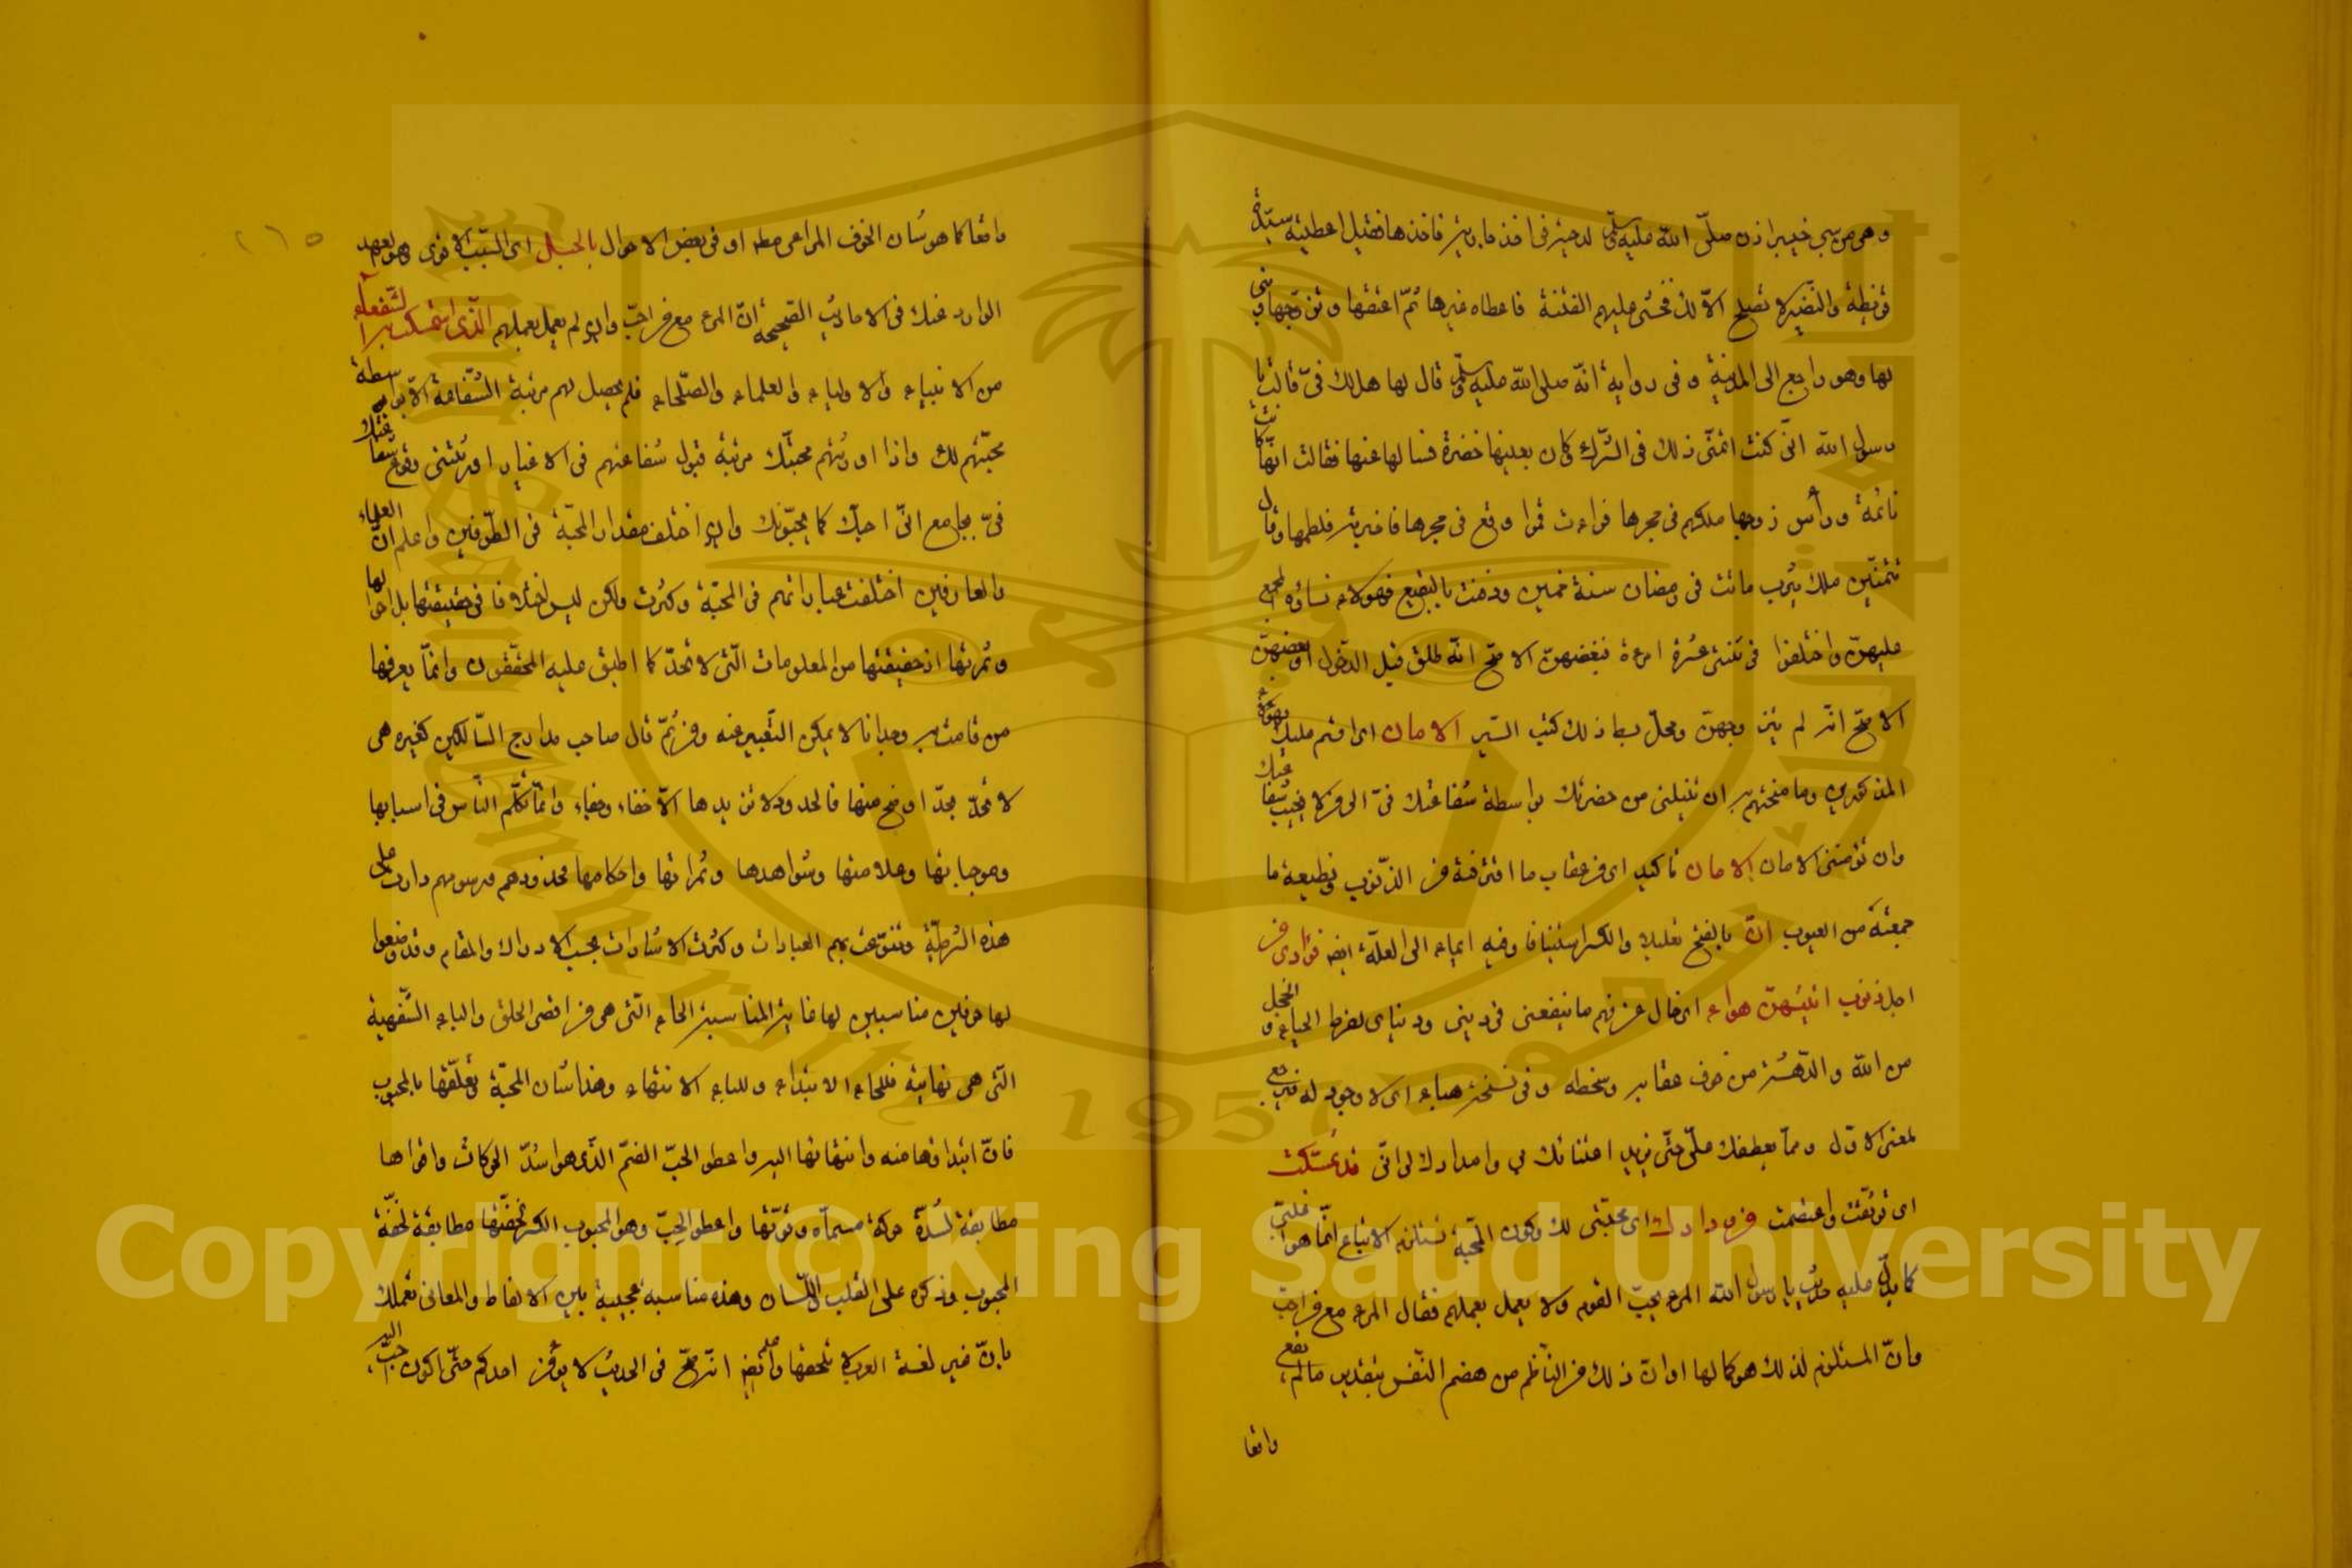 وهى من سبي خيبر اذن صلّى الله عليه وسلّم لدحية فى اخذ جارية فاخذها فقيل اعطيته سيّدة
قريظة والنضير لا تصلح الّا لك فخشى عليهم الفتنة فاعطاه غيرها ثمّ اعتقها وتزوّجها وبنى
بها وهو راجع الى المدينة وفى رواية انّه صلى الله عليه وسلّم قال لها هل لك فىّ قالت يا
رسول الله انّى كنت اتمنّى ذلك فى الشّرك وكان بعينها خضرة فسالها عنها فقالت انّها كانت
نائمة ورأس زوجها ملكهم فى حجرها فرات قمرا وقع فى حجرها فاخبرته فلطمها وقال
تتمنّين ملك يثرب ماتت فى رمضان سنة خمسين ودفنت بالبقيع فهؤلاء نساؤه المجمع
عليهنّ واختلفوا فى ثنتى عشرة امرءة فبعضهنّ الاصحّ انّه طلق قبل الدخول او بعضهنّ
الاصحّ انّه لم يتزوجهنّ ومحلّ بسط ذلك كتب السّير الامان اى اقسم عليك بهؤلاء
المذكورين وما منحتهم به ان تنيلنى من حضرتك بواسطة شفاعتك فىّ الى من لا يخيب شفاعتك
وان تؤمننى الامان الامان تاكيد اى من عقاب ما اقترفته من الذّنوب وقطيعة ما
جمعته من العيوب انّ بالفتح تعليلا والكسر استينافا وفيه ايماء الى العلّة ايضا فؤادى من
اجل ذنوب اتيتهنّ هواء اى خال عن فهم ما ينفعنى فى دينى ودنياى لفرط الحياء و الخجل
من الله والدّهشة من خوف عقابه وسخطه وفى نسخة هباء اى لا وجود له فيرجع
لمعنى الاوّل وممّا يعطفك علىّ حتّى يزيد اعتنائك بى وامدادك لى انّى قد تمسّكت
اى توثّقت واعتصمت من ودادك اى محبّتى لك وكون المحبّة تستلزم الاتباع انّما هو اغلبىّ
كما يدلّ عليه حديث يا رسول الله المرء يحبّ القوم ولا يعمل بعملهم فقال المرء مع من احبّ
وانّ المستلزم لذلك هو كمالها او انّ ذلك من النّاظم من هضم النّفس بتقدير ما لم يقع
واقعا
واقعا كما هو شان الخوف المراعى مطه او فى بعض الاحوال بالحبل اى السّبب الاقوى وهو بعهد
الوارد عنك فى الاحاديث الصّحيحة انّ المرء مع من احبّ وان لم يعمل بعملهم الّذى استمسكت به الشّفعاء
من الانبياء والاولياء والعلماء والصّلحاء فلم يحصل لهم مرتبة الشّفاعة الّا بواسطة
محبّتهم لك واذا اورثتهم محبّتك مرتبة قبول شفاعتهم فى الاغيار اورثتنى وقوع شفاعتك
فىّ بجامع انّى احبّك كما يحبّونك وان اختلف مقدار المحبّة فى الطّرفين واعلم انّ العلماء
والعارفين اختلفت عباراتهم فى المحبّة وكثرت ولكن ليس اختلافا فى حقيقتها بل احوالها
وثمرتها اذ حقيقتها من المعلومات الّتى لا تحدّ كما اطبق عليه المحقّقون وانّما يعرفها
من قامت به وجدانا لا يمكن التّعبير عنه ومن ثمّ قال صاحب مدارج السّالكين كغيره هى
لا تحدّ بحدّ اوضح منها فالحدود لا تزيدها الّا خفاء وجفاء وانّما تكلّم النّاس فى اسبابها
وموجباتها وعلامتها وشواهدها وثمراتها واحكامها فحدودهم ورسومهم دارت على
هذه السّتة وتنوّعت بهم العبارات وكثرت الاشارات بحسب الادراك والمقام وقد وضعوا
لها حرفين مناسبين لها غاية المناسبة الحاء الّتى هى من اقصى الحلق والباء الشّفهية
الّتى هى نهايته فللحاء الابتداء وللباء الانتهاء وهذا شان المحبّة وتعلّقها بالمحبوب
فانّ ابتداؤها منه وانتهائها اليه واعطوا الحبّ الضمّ الّذى هو اشدّ الحركات واقواها
مطابقة لشدّة حركة مسمّاه وقوّتها واعطوا الحِبّ وهو المحبوب الكسر لخفّتها مطابقة لخفّة
المحبوب وذكره على القلب واللّسان وهذه مناسبة عجيبة بين الالفاظ والمعانى تعملك
بانّ غير لغة العرب لا تلحقها واعلم ايضا انّه صحّ فى الحديث لا يؤمن احدكم حتّى اكون احبّ اليه
٢٦٥
Copyright © King Saud University
King Saud University
1957